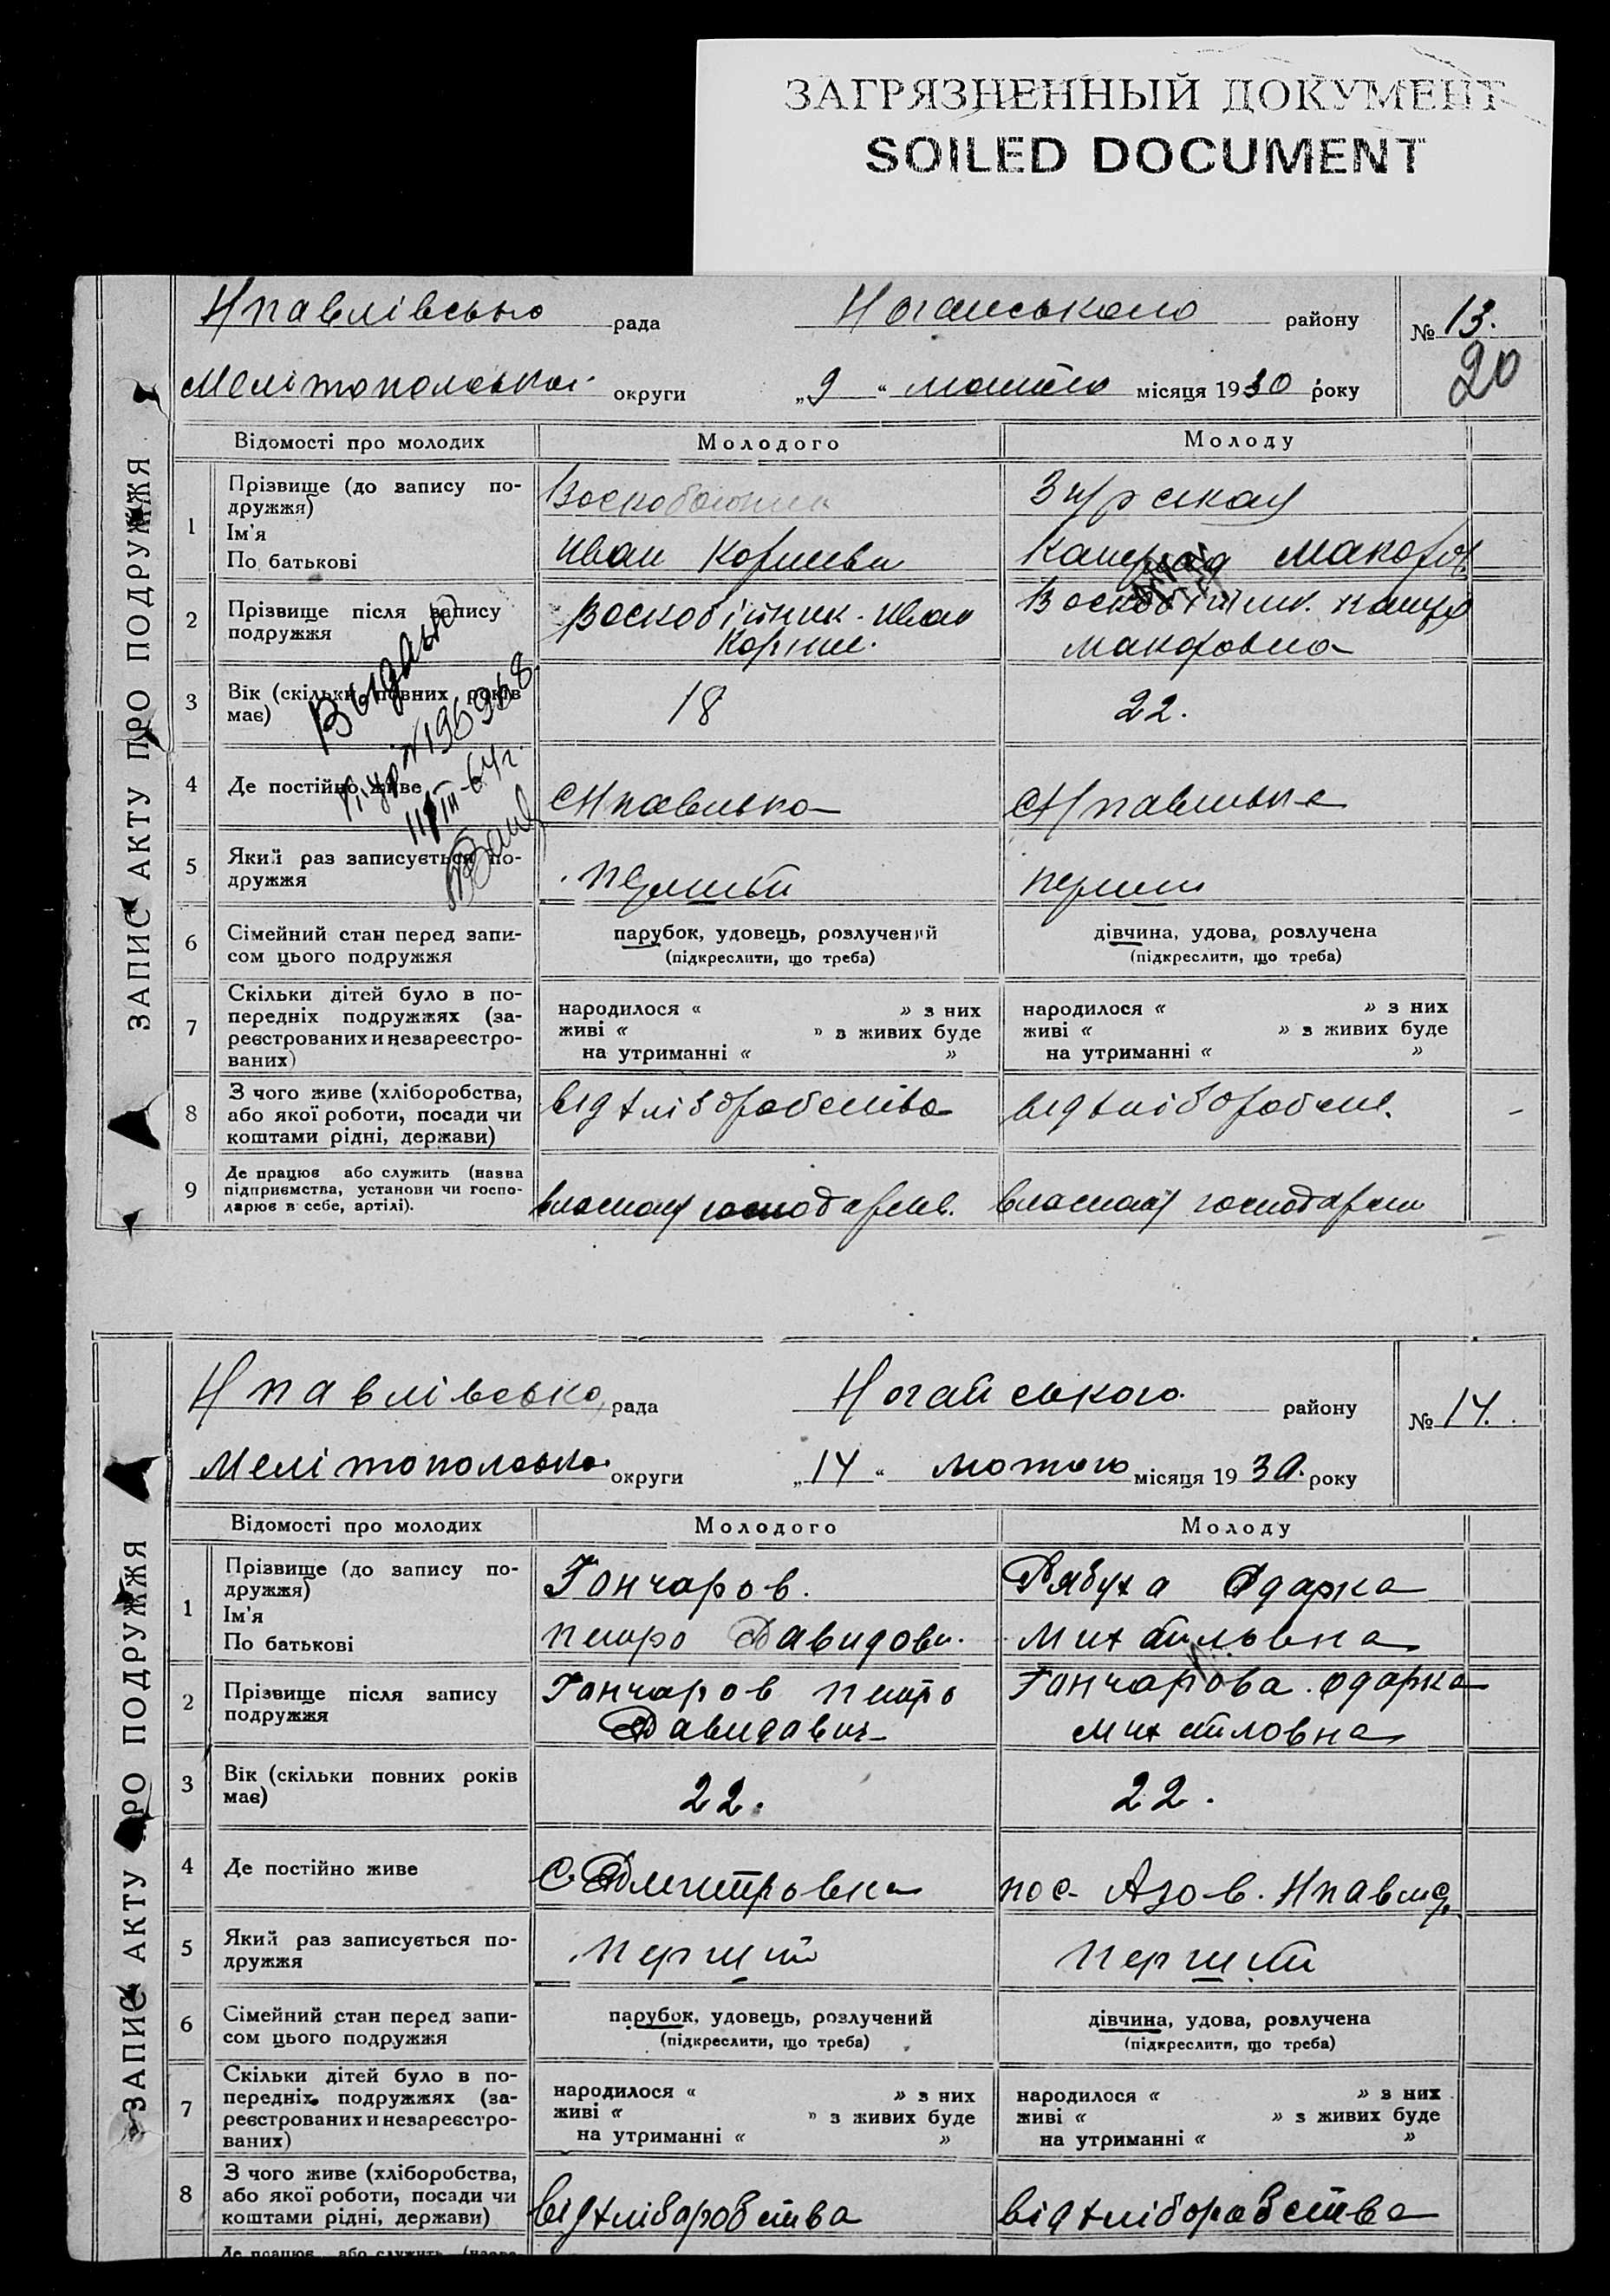 ЗАГРЯЗНЕННЫЙ ДОКУМЕНТ
SOILED DOCUMENT
ЗАПИС АКТУ ПРО ПОДРУЖЖЯ
Нпавлівсько рада Ногайського району № 13.
20
Мелітопольської округи „9“ лютого місяця 1930 року
Відомості про молодих Молодого Молоду
1 Прізвище (до запису по-
дружжя)
Ім'я
По батькові
Воскобойник
Иван Корниеви
Макоров
2 Прізвище після запису
подружжя
Воскобійник. Иван
Корние.
Макоровна
3 Вік (скільки повних років
має)
18 22.
Выдано
№196968
11/III-64г.
4 Де постійно живе
СНпавлівка СНпавлівка
5 Який раз записується по-
дружжя
перший перший
6 Сімейний стан перед запи-
сом цього подружжя
парубок, удовець, розлучений
(підкреслити, що треба)
дівчина, удова, розлучена
(підкреслити, що треба)
7 Скільки дітей було в по-
передніх подружжях (за-
реєстрованих и незареєстро-
ваних)
народилося « » з них
живі « » з живих буде
на утриманні « »
народилося « » з них
живі « » з живих буде
на утриманні « »
8 З чого живе (хліборобства,
або якої роботи, посади чи
коштами рідні, держави)
від хліборобства від хлібороб
9 Де працює або служить (назва
підприємства, установи чи госпо-
дарює в себе, артілі).
власному господарств. власному господарст
ЗАПИС АКТУ ПРО ПОДРУЖЖЯ
Нпавлівсько, рада Ногайського району № 14.
Мелітопольсько округи „14“ лютого місяця 1930. року
Відомості про молодих Молодого Молоду
1 Прізвище (до запису по-
дружжя)
Ім'я
По батькові
Гончаров. Рябуха Одарка
Петро Давидови. Михайльвна
2 Прізвище після запису
подружжя
Гончаров Петро Гончарова. Одарка
Давидавич Михайловна
3 Вік (скільки повних років
має)
22. 22.
4 Де постійно живе
С. Дмитровка пос. Азов. Нпавлід.
5 Який раз записується по-
дружжя
перший перший
6 Сімейний стан перед запи-
сом цього подружжя
парубок, удовець, розлучений
(підкреслити, що треба)
дівчина, удова, розлучена
(підкреслити, що треба)
7 Скільки дітей було в по-
передніх подружжях (за-
реєстрованих и незареєстро-
ваних)
народилося « » з них
живі « » з живих буде
на утриманні « »
народилося « » з них
живі « » з живих буде
на утриманні « »
8 З чого живе (хліборобства,
або якої роботи, посади чи
коштами рідні, держави)
від хлібаробства від хліборобства
Де працює або служить (назва